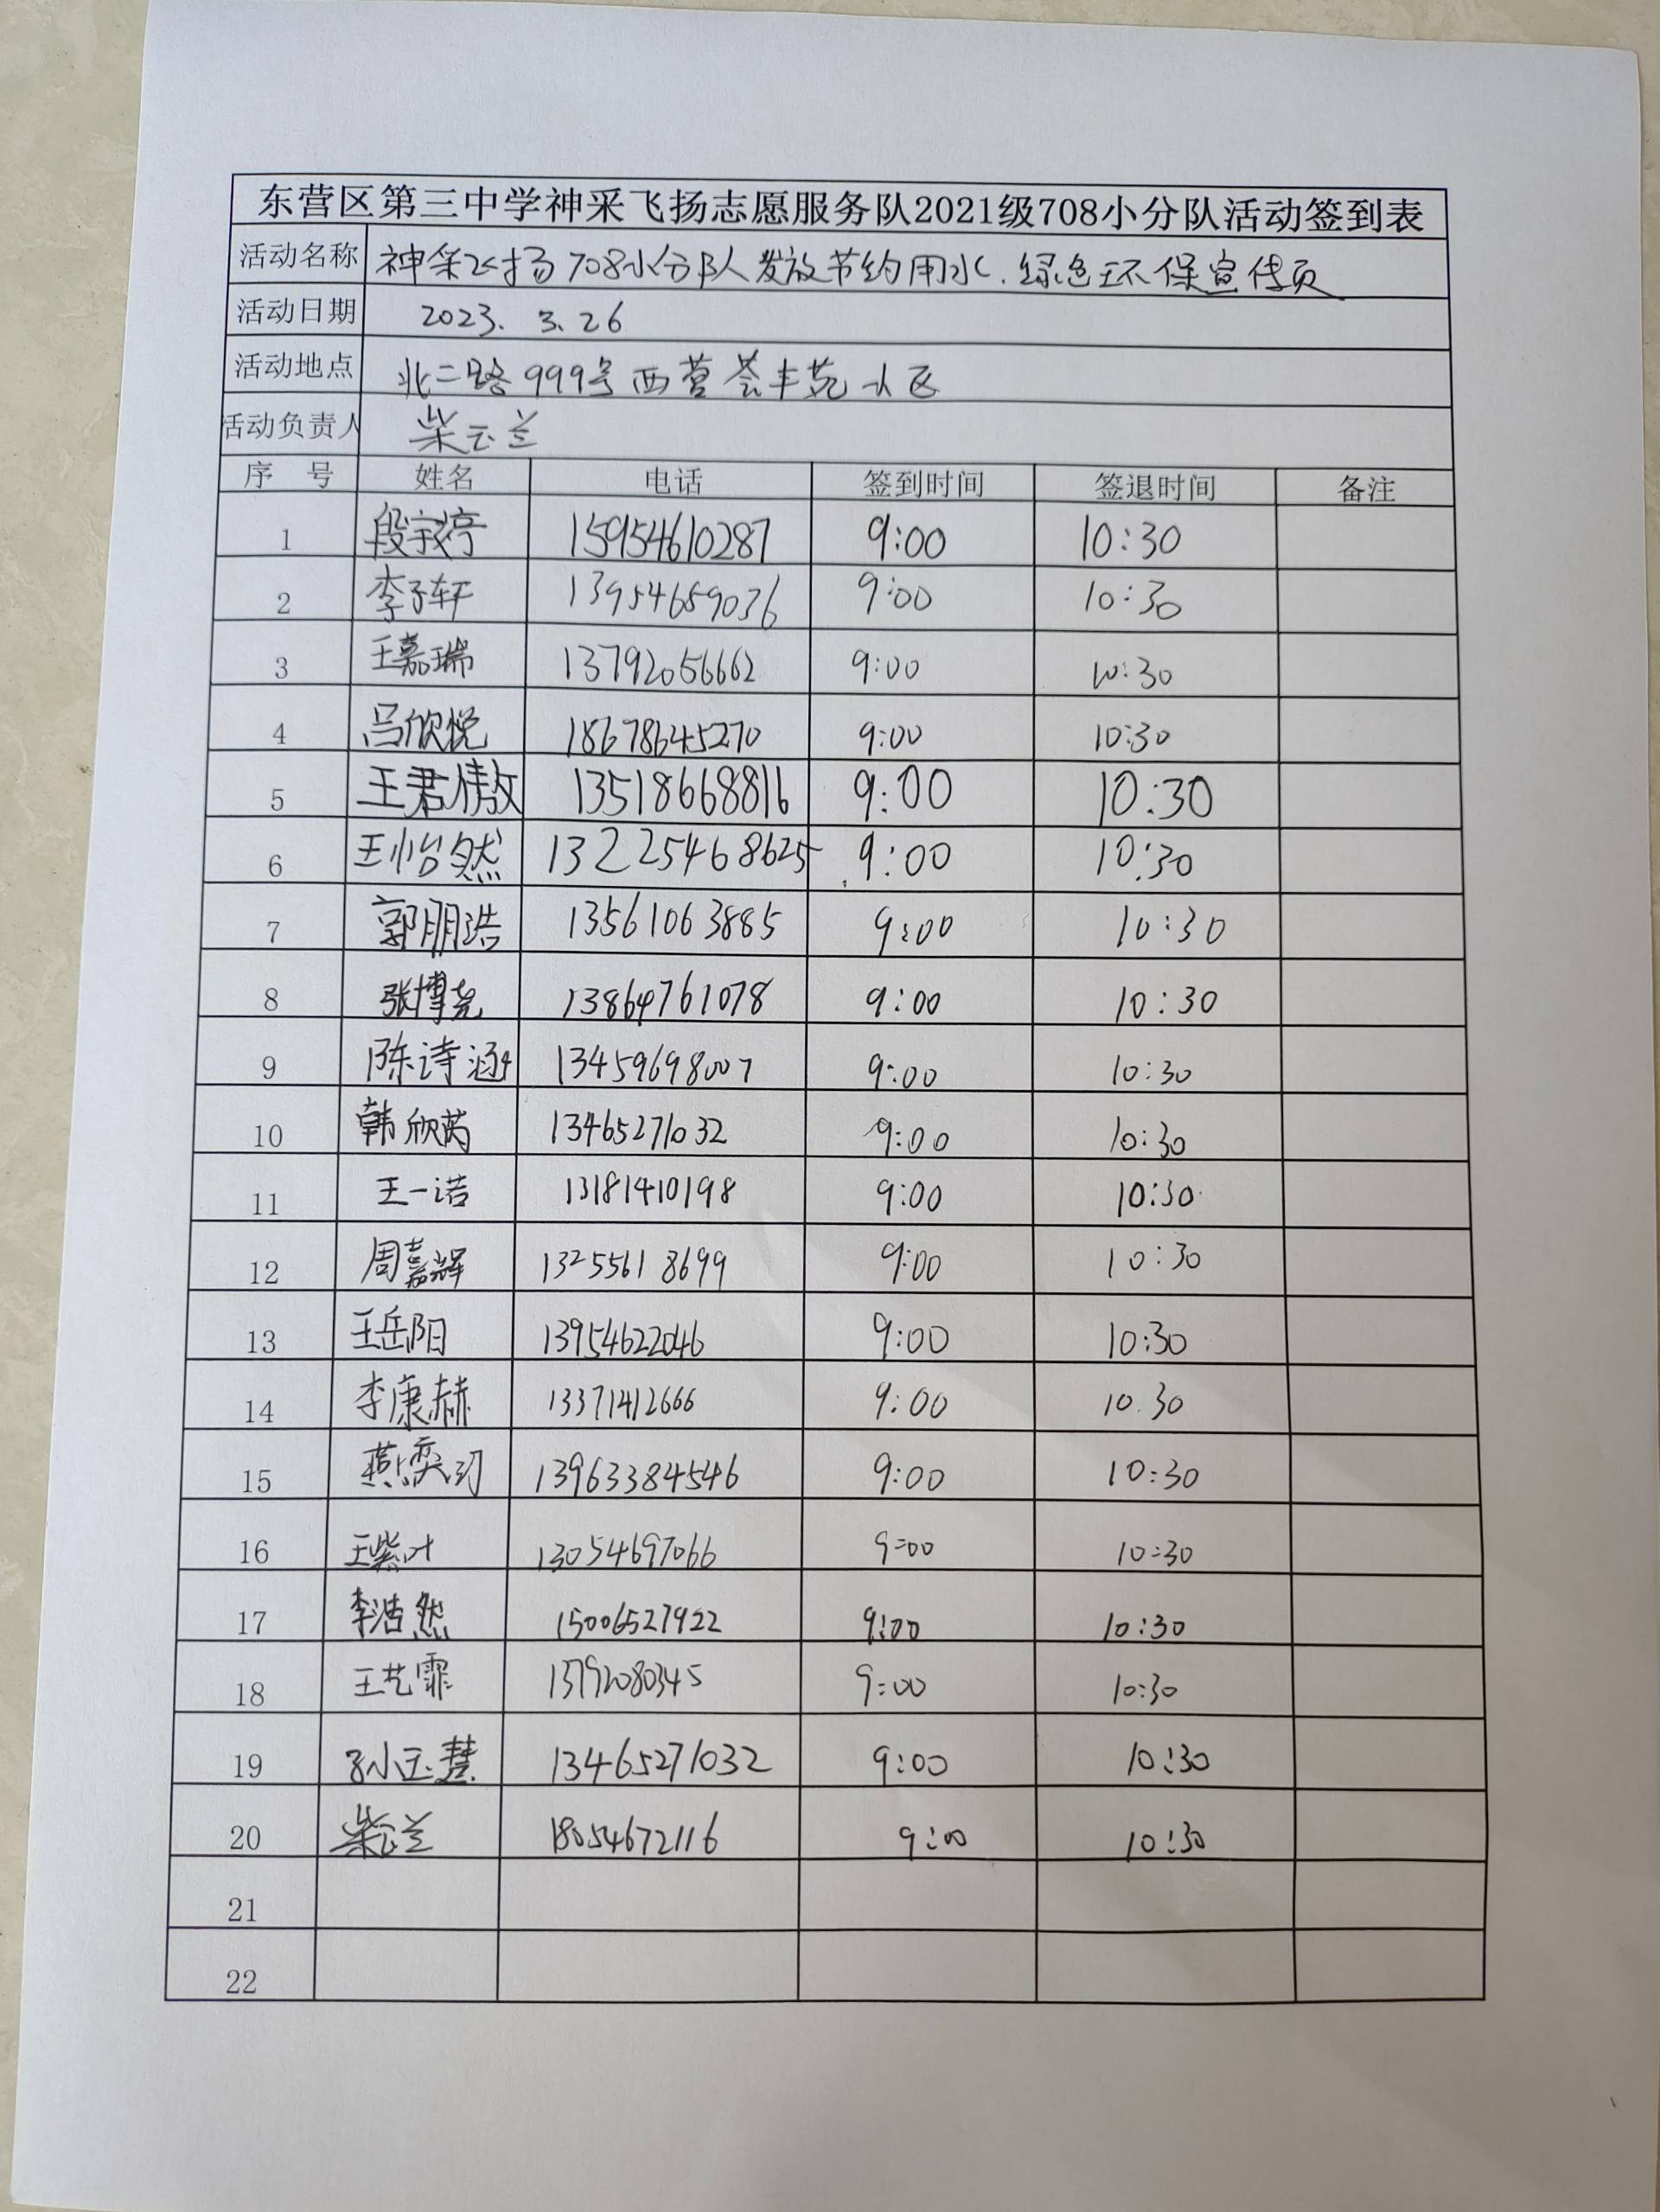 东营区第三中学神采飞扬志愿服务队2021级708小分队活动签到表
活动名称 神采飞扬708小分队发放节约用水.绿色环保宣传页
活动日期 2023. 3. 26
活动地点 北二路999号西营荟丰苑小区
活动负责人 柴玉兰
序 号 姓名 电话 签到时间 签退时间 备注
1 15954610287 9:00 10:30
2 李子轩 13954689036 9:00 10:30
3 王嘉瑞 13792056662 9:00 10:30
4 吕欣悦 18678645270 9:00 10:30
5 13518668816 9:00 10:30
6 王怡然 132225468625 9:00 10:30
7 郭朋浩 13561063885 9:00 10:30
8 张博尧 13864761078 9:00 10:30
9 陈诗涵 13459698007 9:00 10:30
10 韩欣芮 13465271032 9:00 10:30
11 王一诺 13181410198 9:00 10:30
12 周嘉辉 13255618699 9:00 10:30
13 王岳阳 13954622046 9:00 10:30
14 李康赫 13371412666 9:00 10.30
15 13963384546 9:00 10:30
16 王紫叶 13054697066 9:00 10:30
17 李浩然 15006527922 9:00 10:30
18 王艺霏 13792080345 9:00 10:30
19 孙玉慧 13465271032 9:00 10:30
20 柴玉兰 18054672116 9:00 10:30
21
22